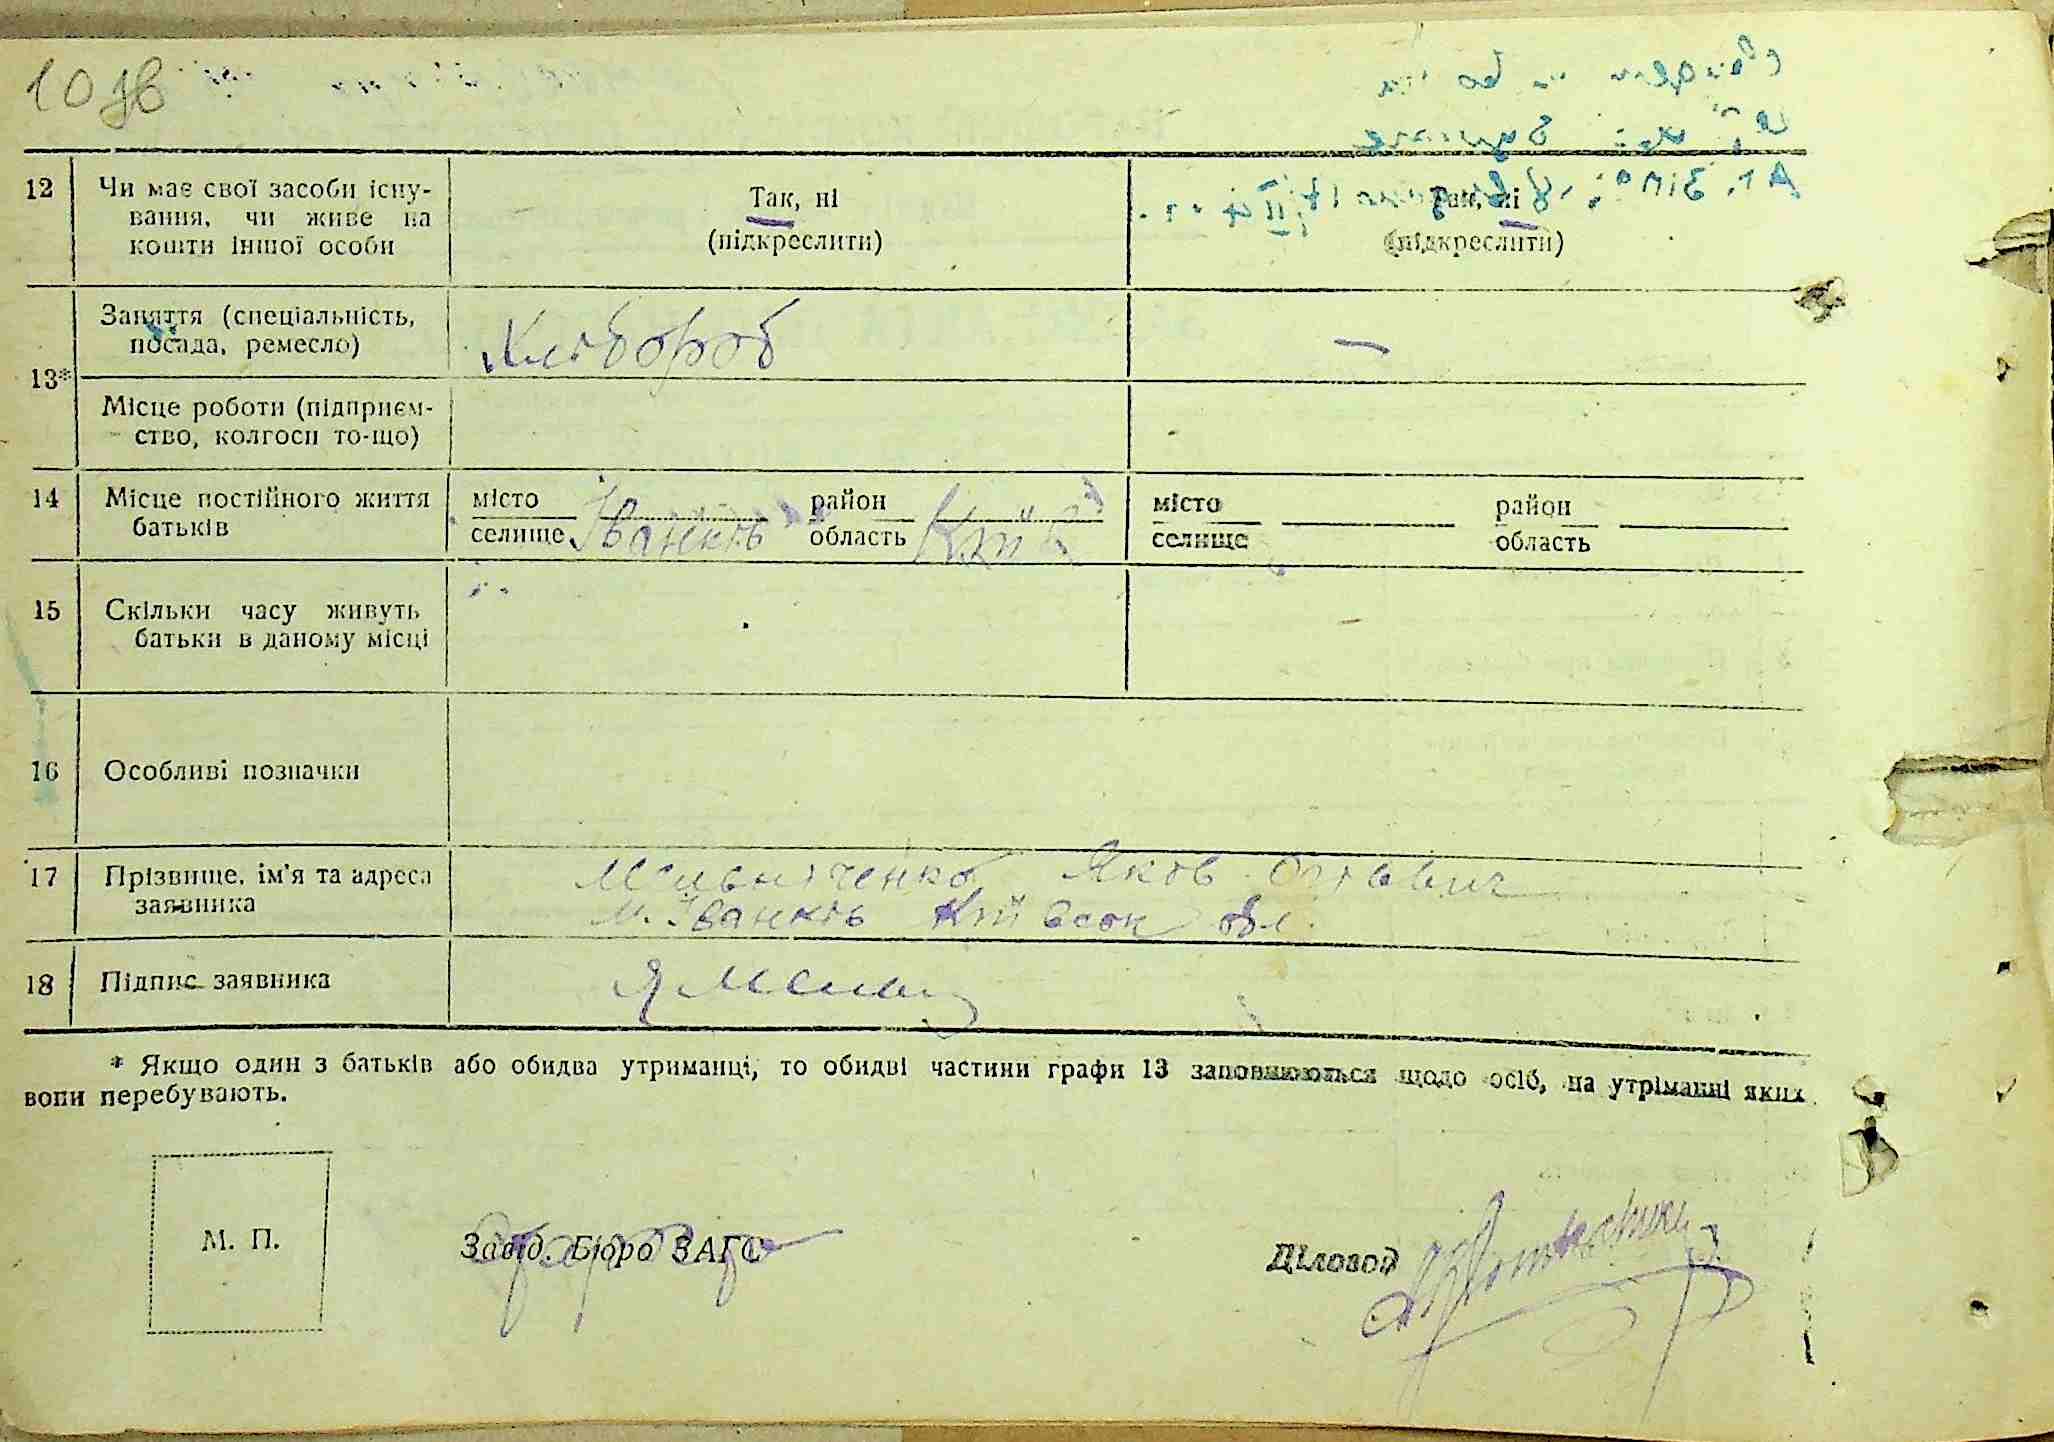 10 зв
12 Чи має свої засоби існу-
вання, чи живе на
кошти іншої особи
Так, ні
(підкреслити)
Так, ні
(підкреслити)
13*
Заняття (спеціальність,
посада, ремесло)
Хлібороб
—
Місце роботи (підприєм-
ство, колгосп то-що)
14 Місце постійного життя
батьків
місто
селище Іванків
район
область Київ
місто
селище
район
область
15 Скільки часу живуть
батьки в даному місці
16 Особливі позначки
17 Прізвище, ім'я та адреса
заявника
Мельниченко Яков
м. Іванків Київськ обл.
18 Підпис заявника
* Якщо один з батьків або обидва утриманці, то обидві частини графи 13 заповнюються щодо осіб, на утріманні яких
вони перебувають.
М. П.
Завід. Бюро ЗАГС
Діловод